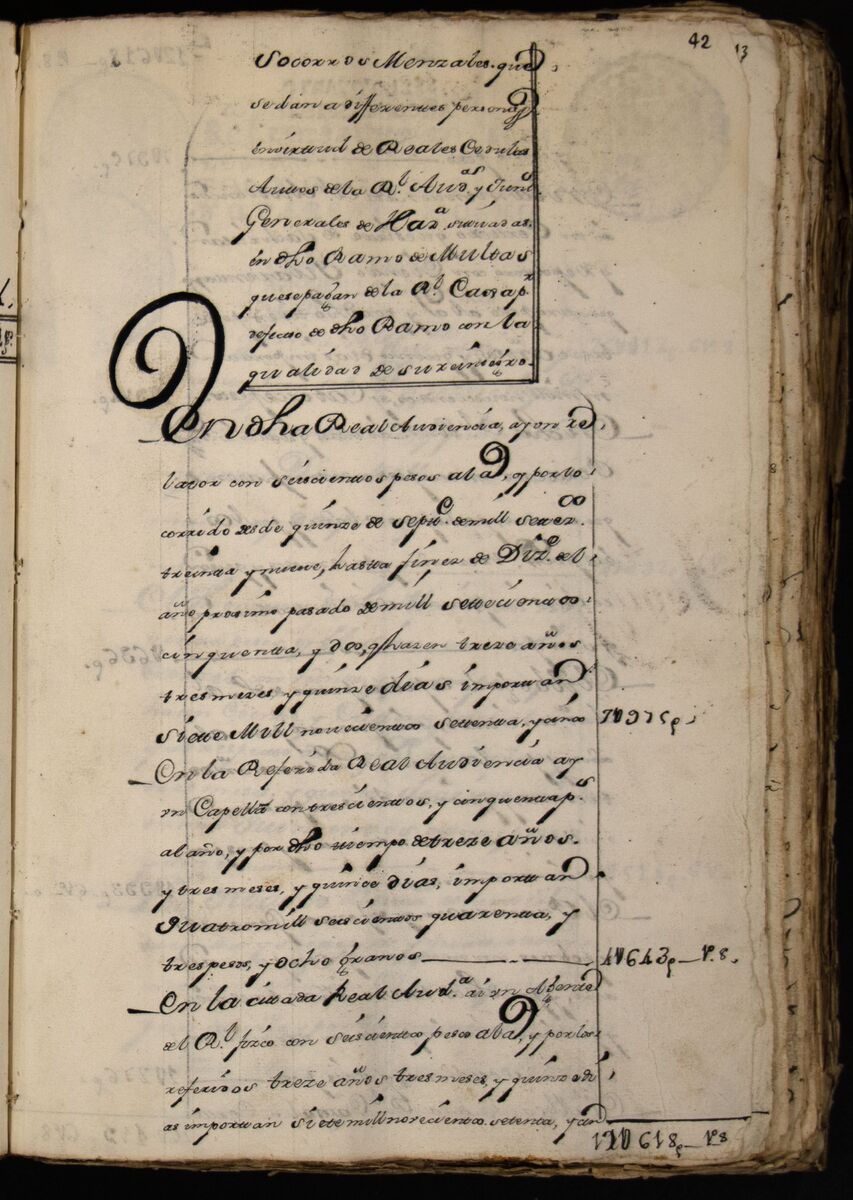 42 13
Socorros Menzales. que
se dan a differentes personas
en virtud de Reales Cedulas
Autos de la Rl. Auda.s y Junts.
Generales de Haza. situadas.
en dho Ramo de Multas
que se pagan de la Rl. Caxa pr.
defecto de dho Ramo con la
qualidad de su reintegro.
En dha Real Audiencia, ay un Re
lator con seiscientos pesos al año, y por lo
corrido desde quinze de Septe. de mill setezos.
treinta y nueve, hasta fines de Dize. del
año proximo pasado de mill settecientos
cinquenta, y dos, q hazen treze años
tres mezes y quinze dias importan
Siette Mill novecientos settenta, y cinco 7U975p.
En la Referida Real Audiencia ay
un Capelln. con trescientos, y cinquenta ps.
al año, y por dho tiempo de treze años.
y tres meses, y quince dias, importan
quatro mill seiscientos quarenta, y
tres pesos, y ocho granos 4U643p - „8.
En la cittada Real Auda. ai un Agente
del Rl. fizco con seiscientos pesos al año, y por los
referidos treze años tres meses, y quinze di
as importan siete mill novecientos setenta, y
12U618p - „8